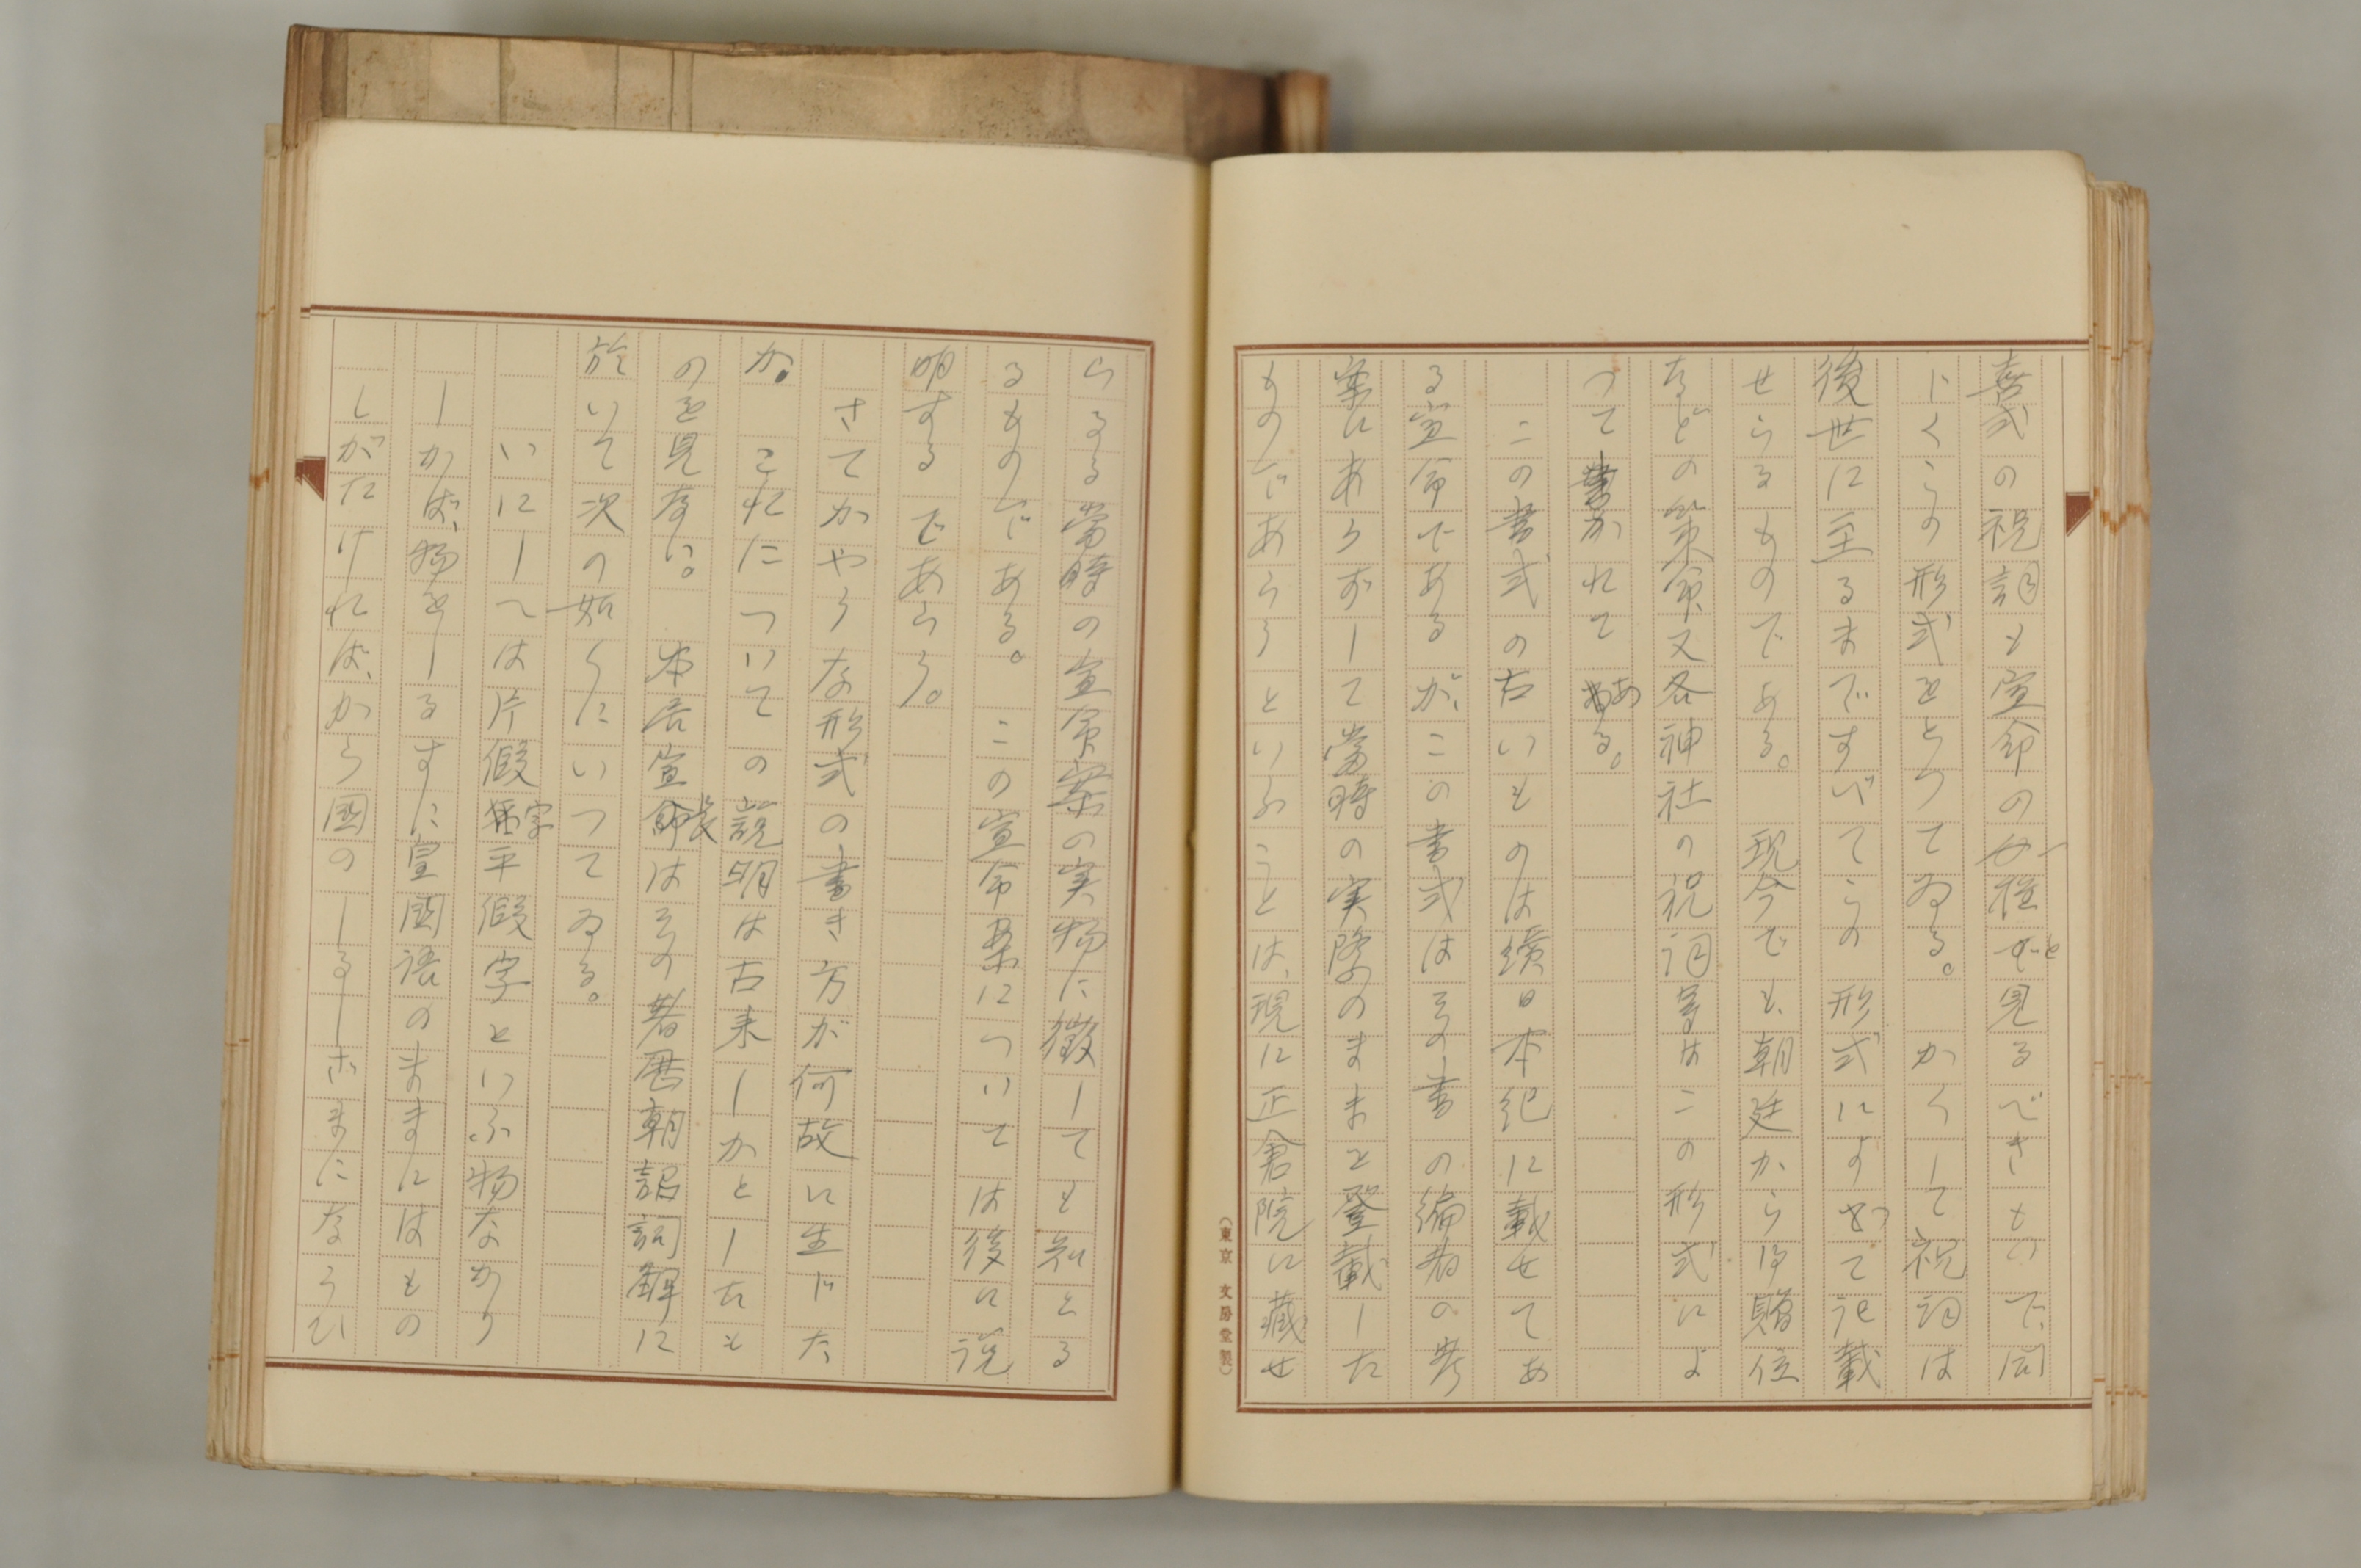 喜式の祝詞も宣命の一種と見るべきもので、同
じくこの形式をとつてゐる。かくして祝詞は
後世に至るまですべてこの形式によつて記載
せらるるものである。現今でも、朝廷から得贈位
などの策命又各神社の祝詞等はこの形式によ
つて書かれてある。
この書式の古いものは續日本紀に載せてあ
る宣命であるが、この書式はその書の編者の考
案にあらずして當時の実際のままと登載した
ものであらうといふことは、現に正倉院に藏せ
(東京 文房堂製)
らるる當時の宣命案の実物に徴しても知らる
るものである。この宣命案については後に説
明するであらう。
さてかやうな形式の書き方が何故に生じた
か。これについての説明は古来しかとしたも
のを見ない。本居宣長はその著歴朝詔詞解に
於いて次の如くにいつてゐる。
いにしへは片假字平假字といふ物なかり
しかば、物をしるすに皇國語のままにはもの
しがたければ、から國のしるしざまにならひ